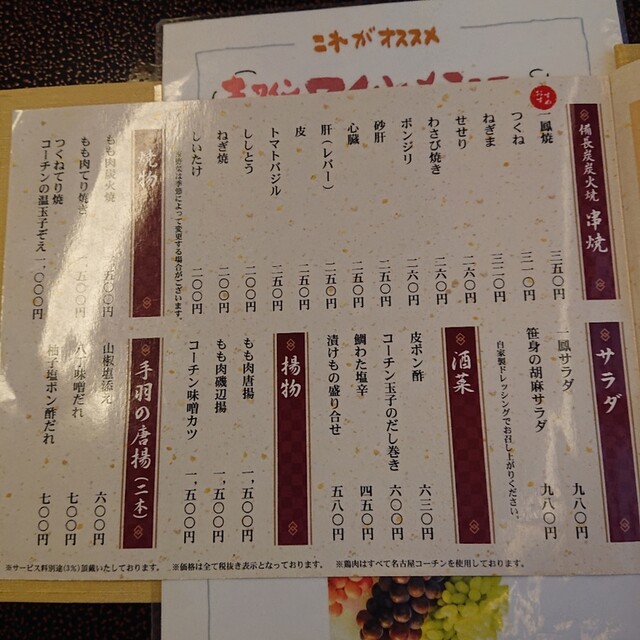 これがオススメ
備長炭炭火焼 串焼
おすすめ
一鳳焼 三五〇円
つくね 三一〇円
ねぎま 三二〇円
せせり 二六〇円
わさび焼き 二六〇円
ボンジリ 二六〇円
砂肝 二五〇円
心臓 二五〇円
肝（レバー） 二五〇円
皮 二五〇円
トマトバジル 二五〇円
ししとう 二〇〇円
ねぎ焼 二〇〇円
しいたけ 二〇〇円
焼物
もも肉炭火焼 一、五〇〇円
もも肉てり焼き 一、五〇〇円
つくねてり焼
コーチンの温玉子ぞえ 一、〇〇〇円
サラダ
一鳳サラダ 九八〇円
笹身の胡麻サラダ 九八〇円
自家製ドレッシングでお召し上がりください。
酒菜
皮ポン酢 六三〇円
コーチン玉子のだし巻き 六〇〇円
鯛わた塩辛 四五〇円
漬けもの盛り合せ 五八〇円
揚物
もも肉唐揚 一、五〇〇円
もも肉磯辺揚 一、五〇〇円
コーチン味噌カツ 一、五〇〇円
手羽の唐揚（二本）
山椒塩添え 六〇〇円
八丁味噌だれ 七〇〇円
柚子塩ポン酢だれ 七〇〇円
※サービス料別途(3%)頂戴いたしております。 ※価格は全て税抜き表示となっております。 ※鶏肉はすべて名古屋コーチンを使用しております。